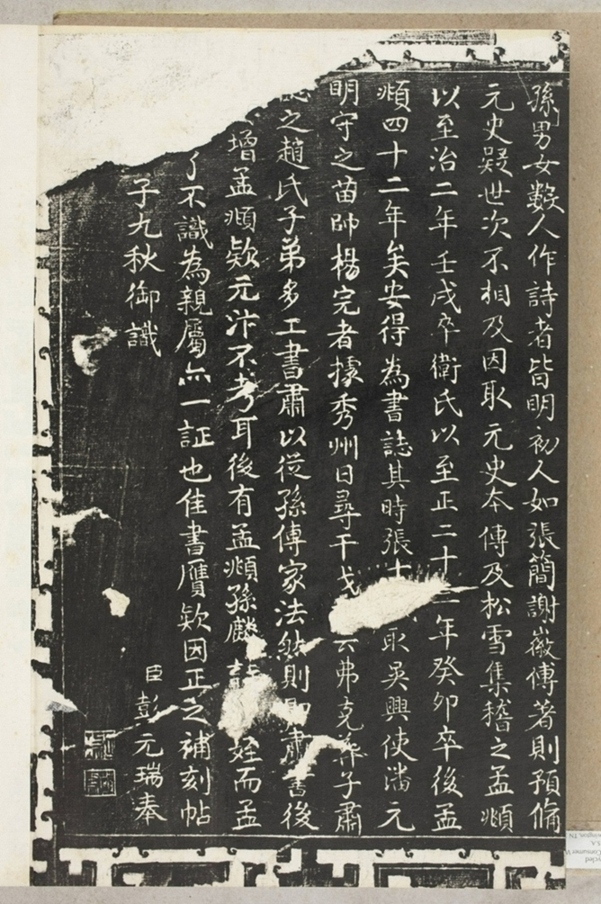 孫男女數人作詩者皆明初人如張簡謝徽傳著則預脩
元史疑世次不相及因取元史本傳及松雪集稽之孟頫
以至治二年壬戌卒衛氏以至正二十三年癸卯卒後孟
頫四十二年矣安得為書誌其時張士取吳興使潘元
明守之苗帥楊完者據秀州日尋干戈云弗克葬子肅
之趙氏子弟多工書肅以從孫傳家法然則即肅書後
增孟頫欵元汴不考耳後有孟頫孫麟姪而孟
不識為親屬亦一証也佳書贋欵因正之補刻帖
子九秋御識
臣彭元瑞奉